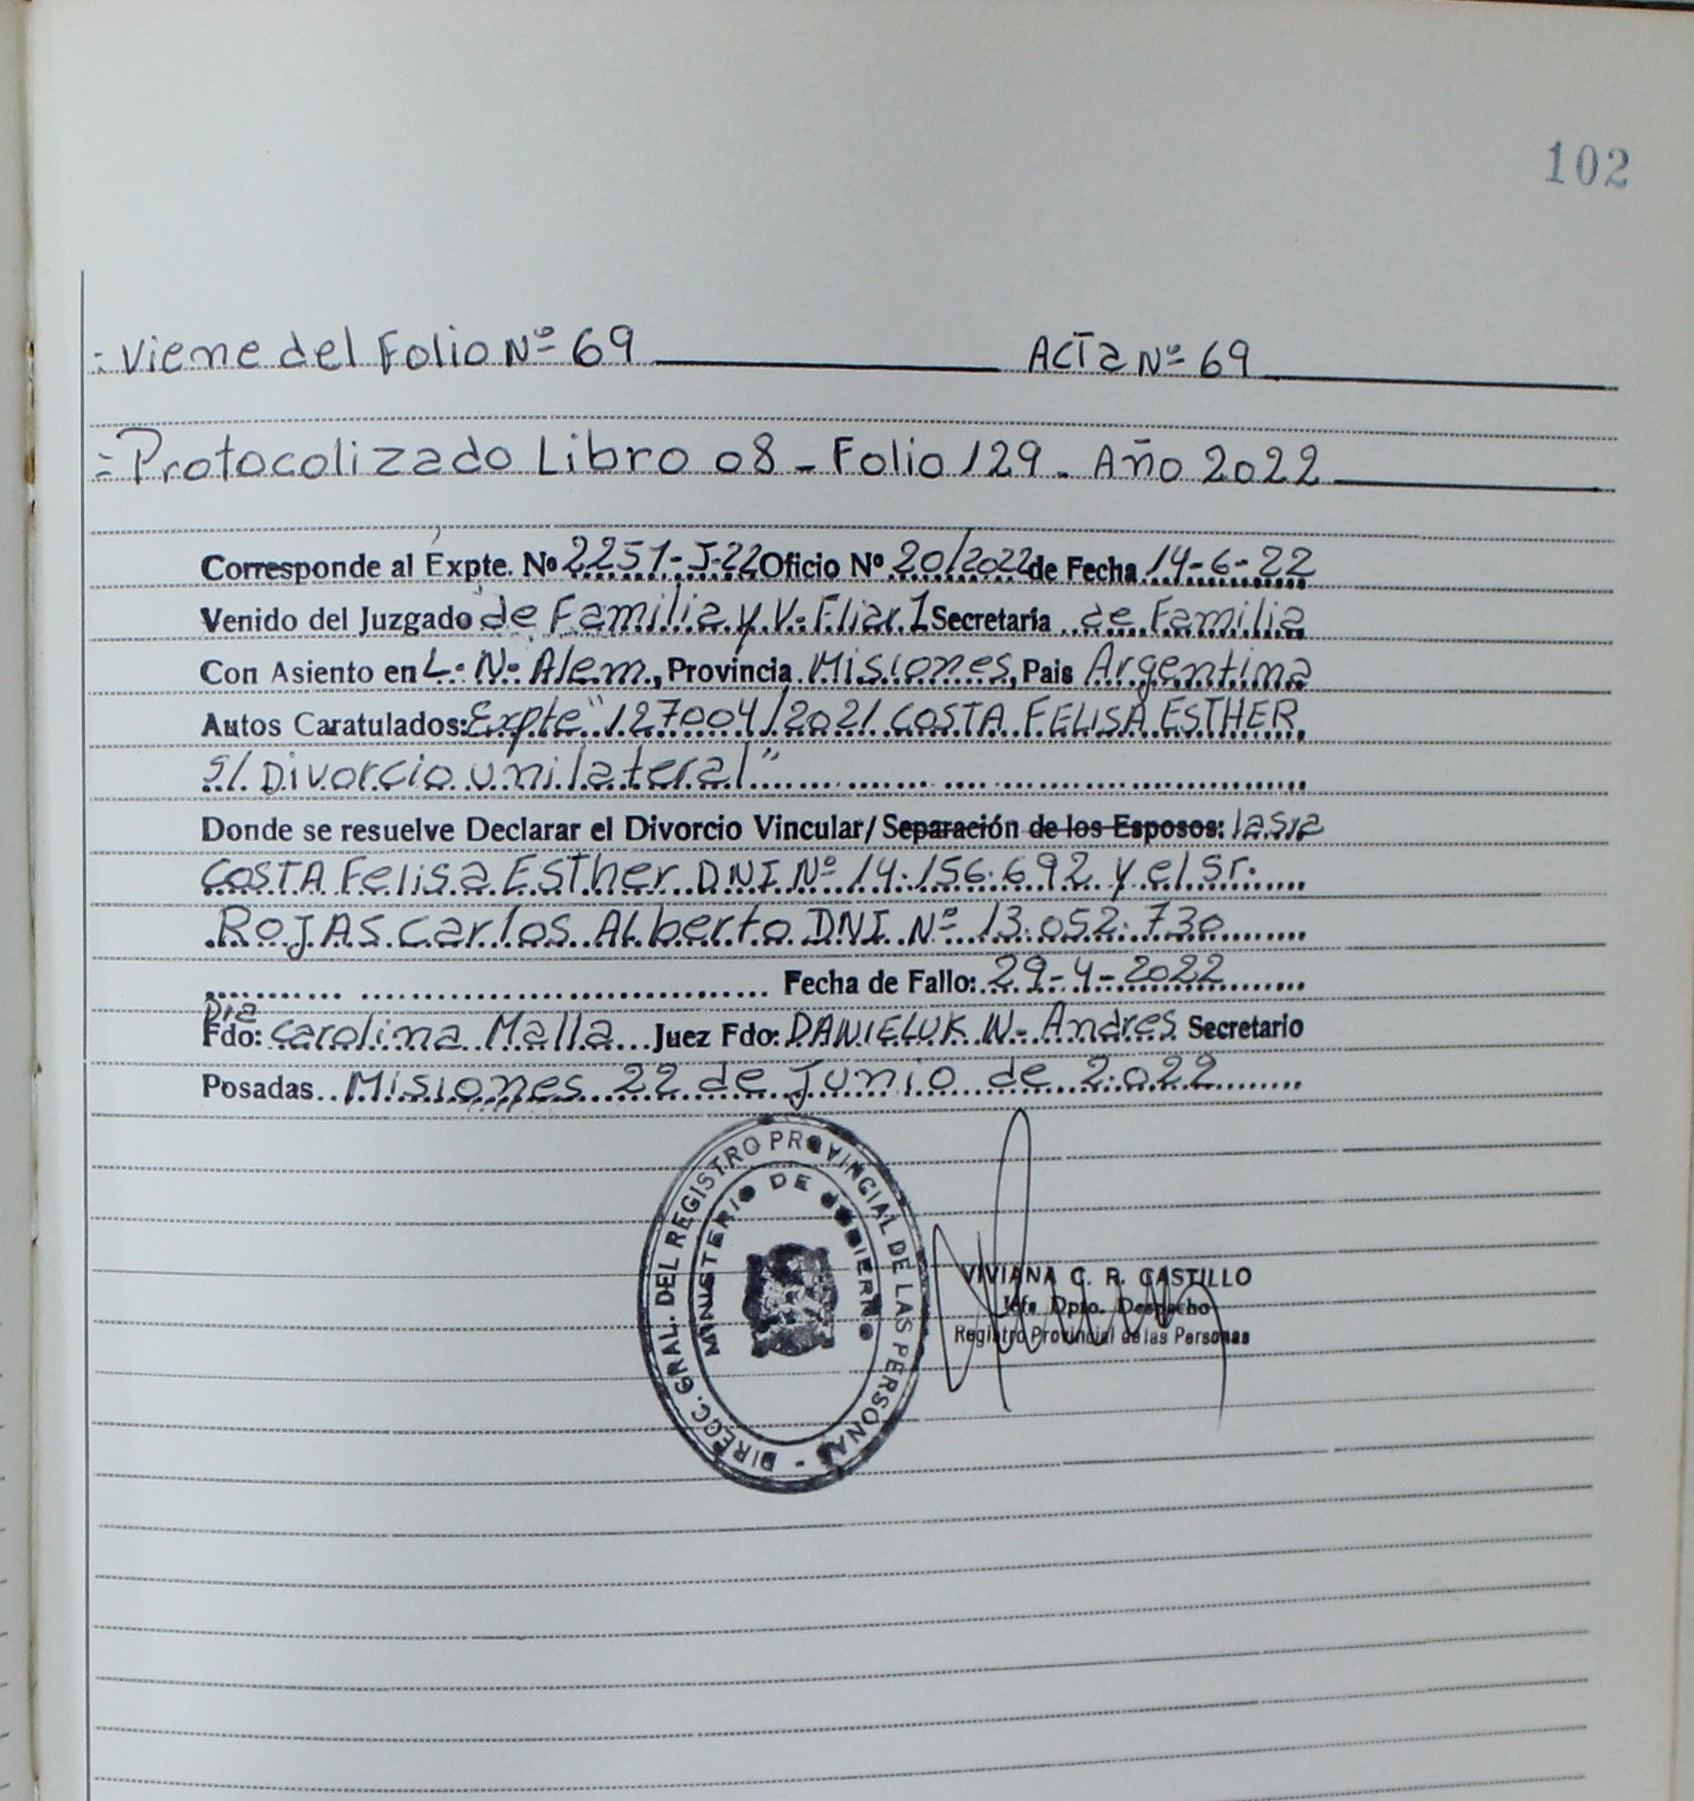 102
= Viene del Folio Nº 69 ACTa Nº 69
= Protocolizado Libro 08 - Folio 129 - Año 2022
Corresponde al Expte. Nº 2251-J-22 Oficio Nº 20/2022 de Fecha 14-6-22
Venido del Juzgado de Familia y V. Fliar. 1 Secretaría de Familia
Con Asiento en L. N. Alem, Provincia Misiones, Pais Argentina
Autos Caratulados: Expte "127004/2021 COSTA FELISA ESTHER
S/. Divorcio unilateral"
Donde se resuelve Declarar el Divorcio Vincular/ Separación de los Esposos: la Sra
COSTA Felisa ESTher DNI Nº 14.156.692 y el sr.
ROJAS Carlos ALberto DNI Nº 13.052.730
Fecha de Fallo: 29-4-2022
Dra
Fdo: Carolina Malla Juez Fdo: DANIELUK N. Andres Secretario
Posadas Misiones 22 de Junio de 2022
DIRECC. GRAL. DEL REGISTRO PROVINCIAL DE LAS PERSONAS -
MINISTERIO DE GOBIERNO
VIVIANA C. R. CASTILLO
Jefe Dpto. Despacho
Registro Provincial de las Personas